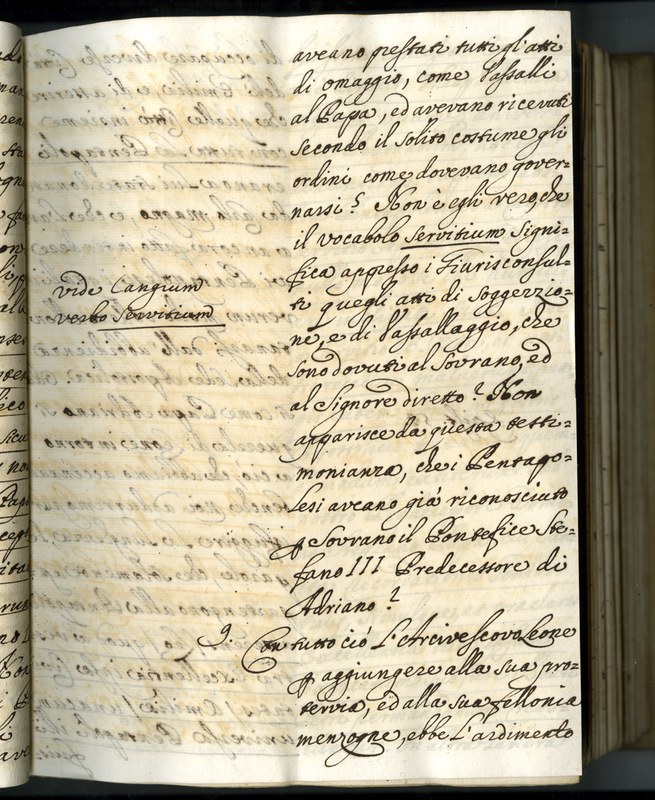 aveano prestati tutti gl'atti
di omaggio, come Vassalli
al Papa, ed avevano ricevuti
secondo il solito costume gli
ordini come dovevano gover=
narsi? Non è egli vero, che
il vocabolo Servitium signi=
fica appresso i Giurisconsul=
ti quegli atti di soggezzio=
ne, e di Vassallaggio, che
sono dovuti al Sovrano, ed
al Signore diretto? Non
apparisce da questa testi=
monianza, che i Pentapo=
lesi aveano già riconosciuto
p Sovrano il Pontefice Ste=
fano III Predecessore di
Adriano?
9. Con tutto ciò L'Arcivescovo Leone
p aggiungere alla sua pro=
tervia, ed alla sua fellonia
menzogne, ebbe l'ardimento
vide Cangium
verbo Servitium